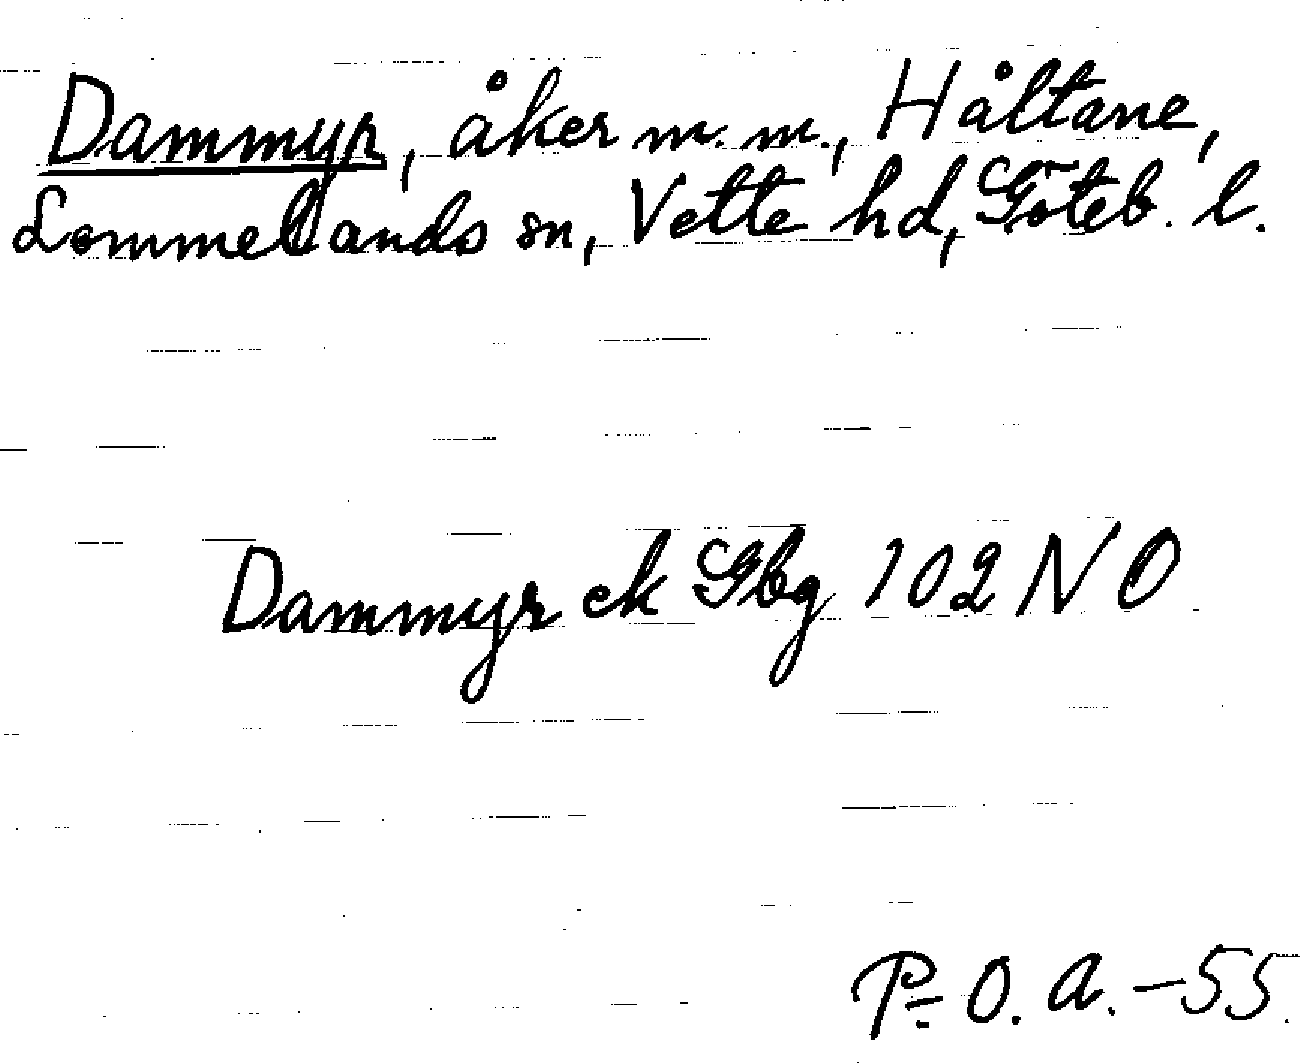 Dammyr, åker m.m., Håltane,
Lommelands sn, Vette hd, Göteb. l.
Dammyr ek Gbg 102 NO
P-O. A. -55